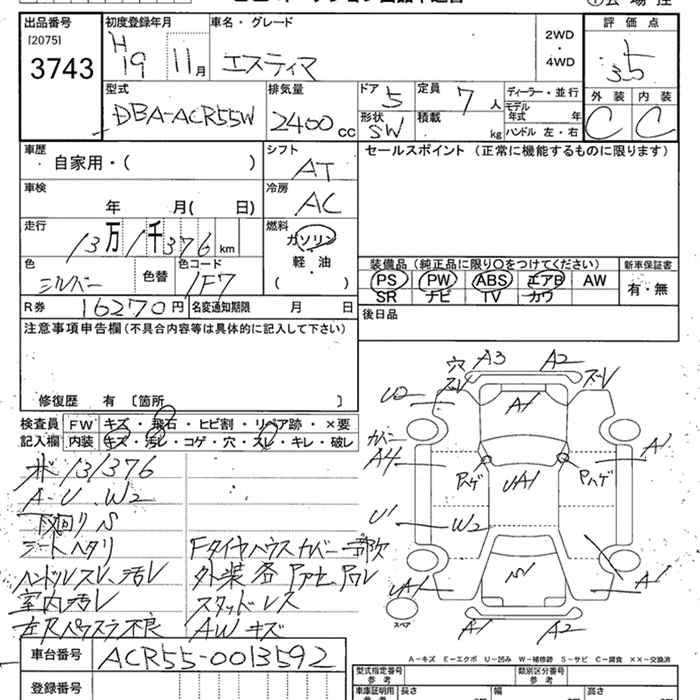 出品番号
[2075]
3743
初度登録年月
H19 11月
車名・グレード
エスティマ
2WD
・
4WD
評価点
3.5
外装 内装
C C
型式
DBA-ACR55W
排気量
2400cc
ドア 5
形状 SW
定員 7人
積載 kg
ディーラー・並行
モデル年式 年式
ハンドル 左・右
車歴
自家用・( )
シフト
AT
セールスポイント (正常に機能するものに限ります)
車検
年 月( 日)
冷房
AC
走行
13万1千376km
燃料
ガソリン
軽・油
( )
色
シルバー
色替
色コード
1F7
装備品(純正品に限り○をつけてください)
新車保証書
PS PW ABS エアB AW
SR ナビ TV カワ
有・無
R券 16270円
名変通知期限 月 日
後日品
注意事項申告欄(不具合内容等は具体的に記入して下さい)
修復歴 有 〔箇所 〕
検査員記入欄
FW キズ・飛石・ヒビ割・リペア跡・×要
内装 キズ・汚レ・コゲ・穴・スレ・キレ・破レ
ボ 131376
A-U W2
下廻り S
シートヘタリ
ハンドルスレ、汚レ
室内汚レ
Fタイヤハウスカバー一部欠
外装 各
スタッドレス
AWキズ
穴 A3 A2
U2
A1
カバー
A4
A1
Pハゲ
Pハゲ
UA1
U1
W2
UA1
A1
A1
A2
スペア
A-キズ E-エクボ U-凹み W-補修跡 S-サビ C-腐食 ××-交換済
車台番号
ACR55-0013592
登録番号
型式指定番号
参考
類別区分番号
参考
車庫証明用
参考
長さ
幅
高さ